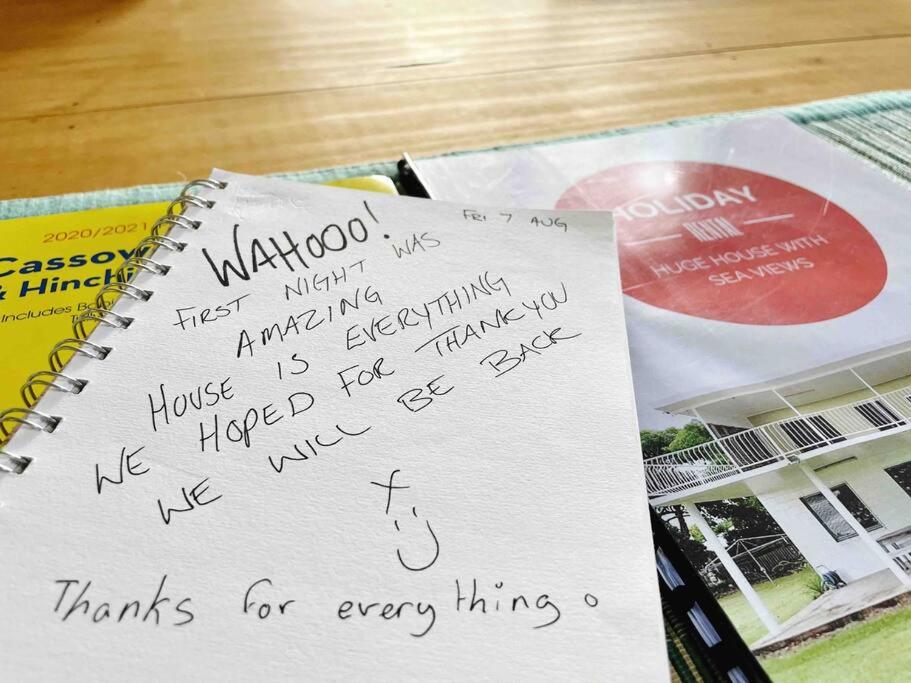 FRI 7 AUG
WAHOOO!
FIRST NIGHT WAS
AMAZING
HOUSE IS EVERYTHING
WE HOPED FOR THANKYOU
WE WILL BE BACK
x
:)
Thanks for everything o
2020/2021
Cassow
& Hinchi
Includes
HOLIDAY
HUGE HOUSE WITH
SEA VIEWS